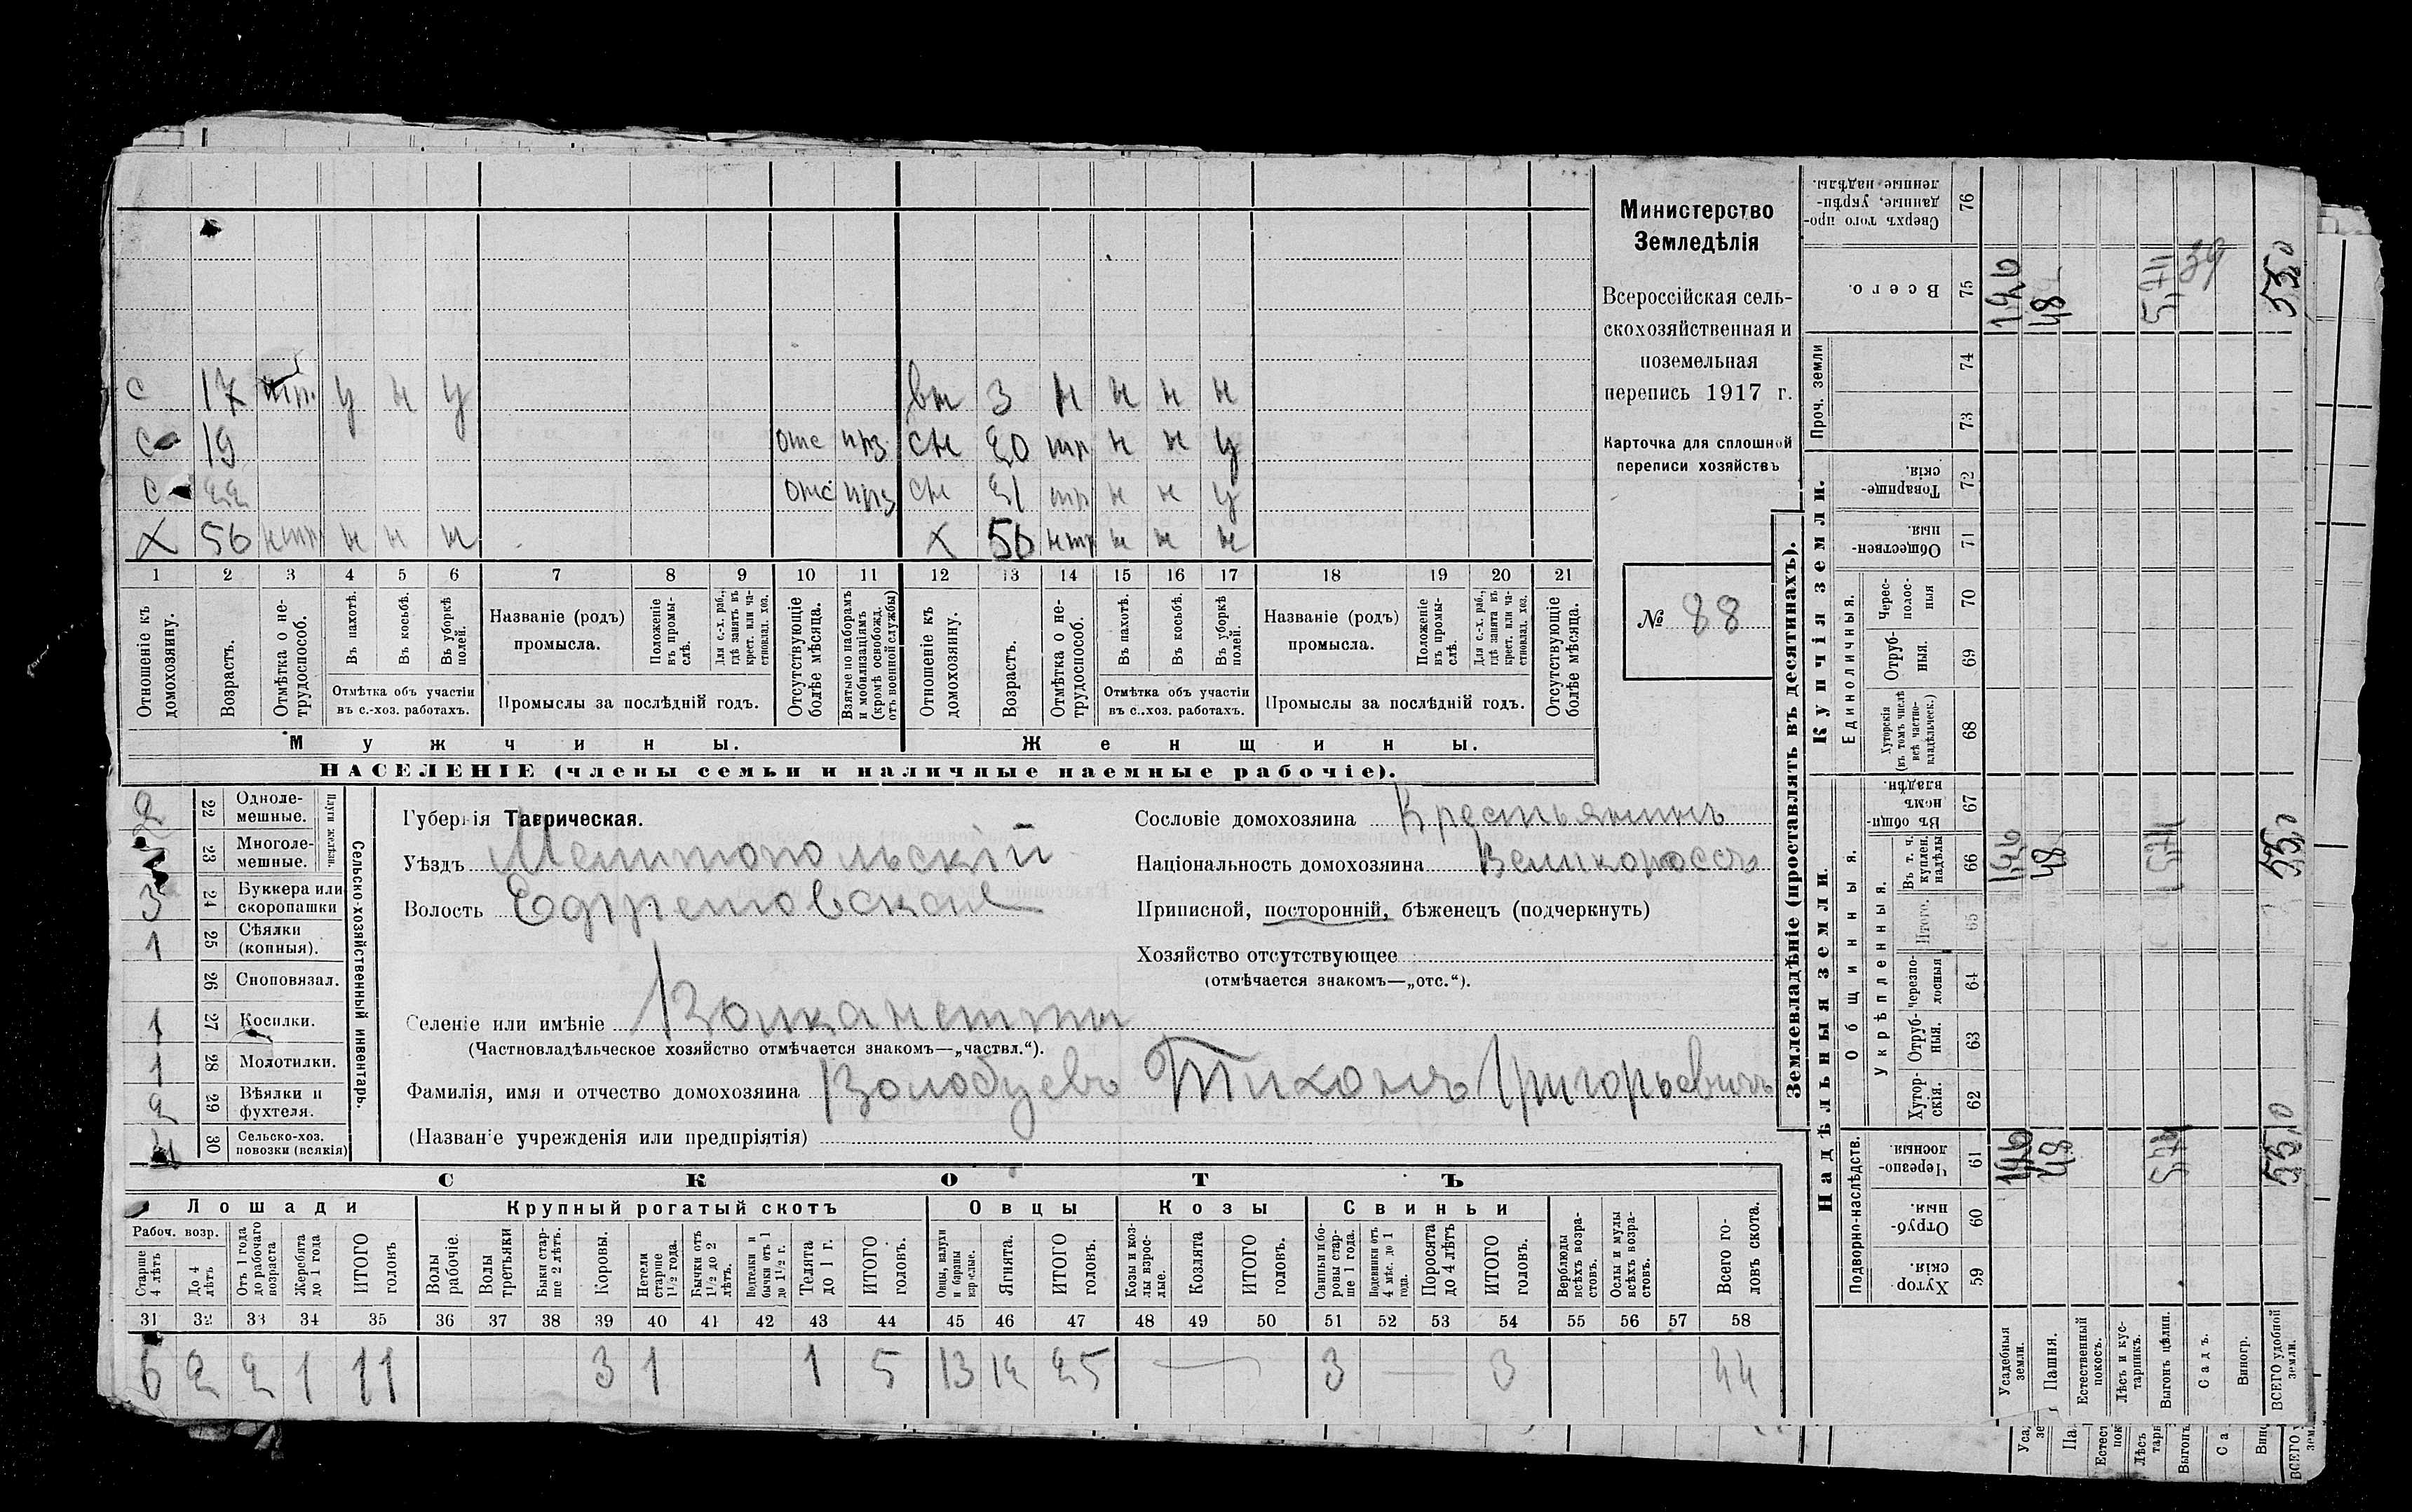 Министерство
Земледѣлія
Всероссійская сель-
скохозяйственная и
поземельная
перепись 1917 г.
Карточка для сплошной
переписи хозяйствъ
№ 88
с 17 у н у
вн 3 н н н н
с 19 отс прз
сн 20 тр н н у
с 22 отс прз
сн 21 тр н н у
х 56 нтр н н н
х 56 нтр н н н
1 2 3 4 5 6 7 8 9 10 11 12 13 14 15 16 17 18 19 20 21
Отношеніе къ домохозяину.
Возрастъ.
Отмѣтка о не-трудоспособ.
Въ пахотѣ.
Въ косьбѣ.
Въ уборкѣ полей.
Отмѣтка объ участіи
въ с.-хоз. работахъ.
Названіе (родъ)
промысла.
Положеніе въ промы-слѣ.
Для с.-х. раб., гдѣ занятъ въ крест. или ча-стновлад. хоз.
Промыслы за послѣдній годъ.
Отсутствующіе болѣе мѣсяца.
Взятые по наборамъ и мобилизаціямъ (кромѣ освобожд. отъ военной службы)
Отношеніе къ домохозяину.
Возрастъ.
Отмѣтка о не-трудоспособ.
Въ пахотѣ.
Въ косьбѣ.
Въ уборкѣ полей.
Отмѣтка объ участіи
въ с..хоз. работахъ.
Названіе (родъ)
промысла.
Положеніе въ промы-слѣ.
Для с.-х. раб., гдѣ занята въ крест. или ча-стновлад. хоз.
Промыслы за послѣдній годъ.
Отсутствующіе болѣе мѣсяца.
Мужчины.
Женщины.
НАСЕЛЕНІЕ (члены семьи и наличные наемные рабочіе).
2 22 Одноле-мешные.
23 Многоле-мешные.
3 24 Буккера или скоропашки
1 25 Сѣялки (конныя).
26 Сноповязал.
1 27 Косилки.
1 28 Молотилки.
2 29 Вѣялки и фухтеля.
30 Сельско-хоз. повозки (всякія)
Сельско-хозяйственный инвентарь.
Губернія Таврическая.
Уѣздъ Мелитопольскій
Волость Ефремовская
Сословіе домохозяина Крестьянинъ
Національность домохозяина Великороссъ
Приписной, посторонній, бѣженецъ (подчеркнуть)
Хозяйство отсутствующее
(отмѣчается знакомъ—„отс.“).
Селеніе или имѣніе Волканешты
(Частновладѣльческое хозяйство отмѣчается знакомъ—„частвл.“).
Фамилія, имя и отчество домохозяина Волобуевъ Тихонъ Григорьевичъ
(Названіе учрежденія или предпріятія)
СКОТЪ
Лошади
Крупный рогатый скотъ
Овцы
Козы
Свиньи
Рабоч. возр.
Старше 4 лѣтъ
До 4 лѣтъ
Отъ 1 года до рабочаго возраста
Жеребята до 1 года
ИТОГО головъ
Волы рабочіе.
Волы третьяки
Быки стар-ше 2 лѣтъ.
Коровы.
Нетели старше 1½ года.
Бычки отъ 1½ до 2 лѣтъ.
Подтелки и бычки отъ 1 до 1½ г.
Телята до 1 г.
ИТОГО головъ.
Овцы, валухи и бараны взрослые.
Ягнята.
ИТОГО головъ.
Козы и коз-лы взрос-лые.
Козлята
ИТОГО головъ.
Свиньи и бо-ровы стар-ше 1 года.
Подсвинки отъ 4 мѣс. до 1 года.
Поросята до 4 лѣтъ
ИТОГО головъ.
Верблюды всѣхъ возра-стовъ.
Ослы и мулы всѣхъ возра-стовъ.
Всего го-ловъ скота.
31 32 33 34 35 36 37 38 39 40 41 42 43 44 45 46 47 48 49 50 51 52 53 54 55 56 57 58
6 2 2 1 11 3 1 1 5 13 12 25 — 3 — 3 44
Землевладѣніе (проставлять въ десятинахъ).
Купчія земли.
Надѣльныя земли.
Сверхъ того про-данные, укрѣп-ленные надѣлы. 76
Всего. 75
Проч. земли
74
73
Товарище-скія. 72
Обществен-ныя. 71
Единоличныя.
Черес-полос-ныя 70
Отруб-ныя. 69
Хуторскія (въ томъ числѣ всѣ частно-владѣльческ.) 68
Общинныя.
Въ общи-номъ владѣн. 67
Укрѣпленныя.
Въ т. ч. куплен. надѣлы 66
Итого. 65
черезпо-лосныя 64
Отруб-ныя. 63
Хутор-скія. 62
Подворно-наслѣдств.
Черезпо-лосныя. 61
Отруб-ныя. 60
Хутор-скія. 59
Усадебныя земли.
Пашня. 48 48 48
Естественный покосъ.
Лѣсъ и кус-тарникъ.
Выгонъ цѣлин.
Садъ.
Виногр.
ВСЕГО удобной земли. 55,0 55,0 55,0
39